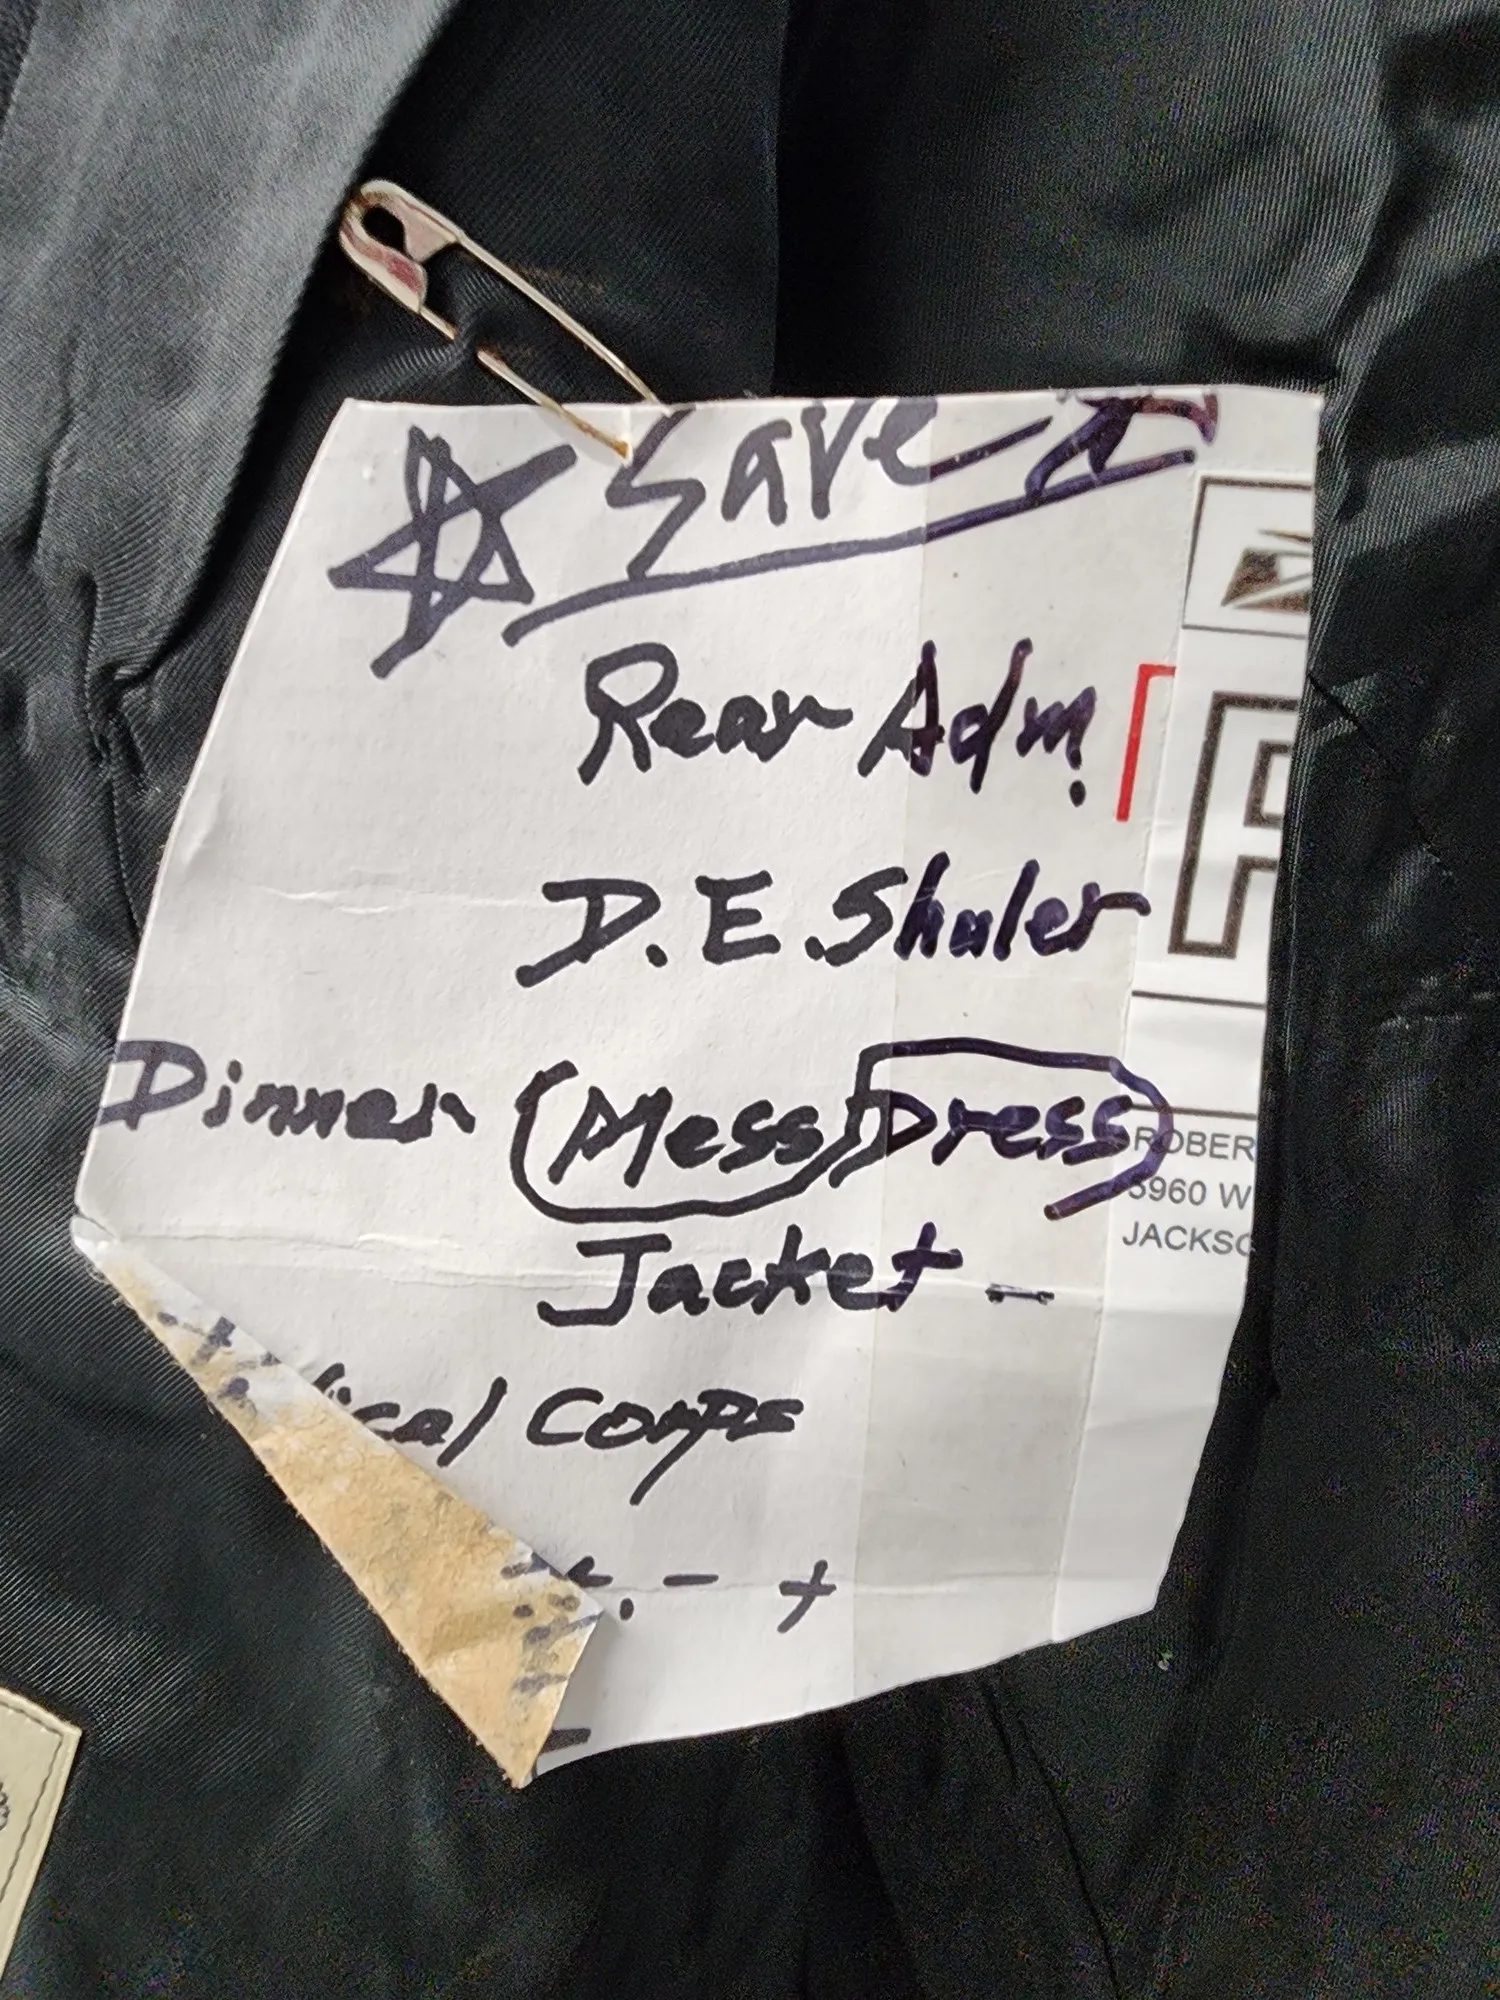 Save
Rear Adm.
D.E. Shuler
Dinner (Mess Dress)
Jacket -
ical Corps
- +
P
ROBER
5960 W
JACKSO